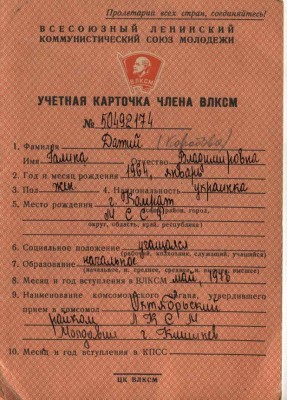 Пролетарии всех стран, соединяйтесь!
ВСЕСОЮЗНЫЙ ЛЕНИНСКИЙ
КОММУНИСТИЧЕСКИЙ СОЮЗ МОЛОДЕЖИ
ВЛКСМ
УЧЕТНАЯ КАРТОЧКА ЧЛЕНА ВЛКСМ
№ 50492174
1. Фамилия Датий
Имя Галина Отчество Владимировна
2. Год и месяц рождения 1961, январь
3. Пол жен. 4. Национальность украинка
5. Место рождения г. Комрат
(город, район, город,
МССР
округ, область, край, республика)
6. Социальное положение учащаяся
(рабочий, колхозник, служащий, учащийся)
7. Образование начальное
(начальное, н. среднее, среднее, н. высшее, высшее)
8. Месяц и год вступления в ВЛКСМ май, 1976
9. Наименование комсомольского органа, утвердившего
прием в комсомол Октябрьский
райком ЛКСМ
Молдавии г. Кишинев
10. Месяц и год вступления в КПСС
ЦК ВЛКСМ